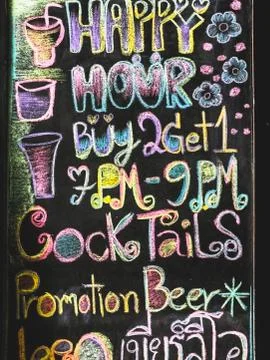 HAPPY
HOUR
Buy 2Get1
7PM-9PM
COCKTAILS
Promotion Beer*